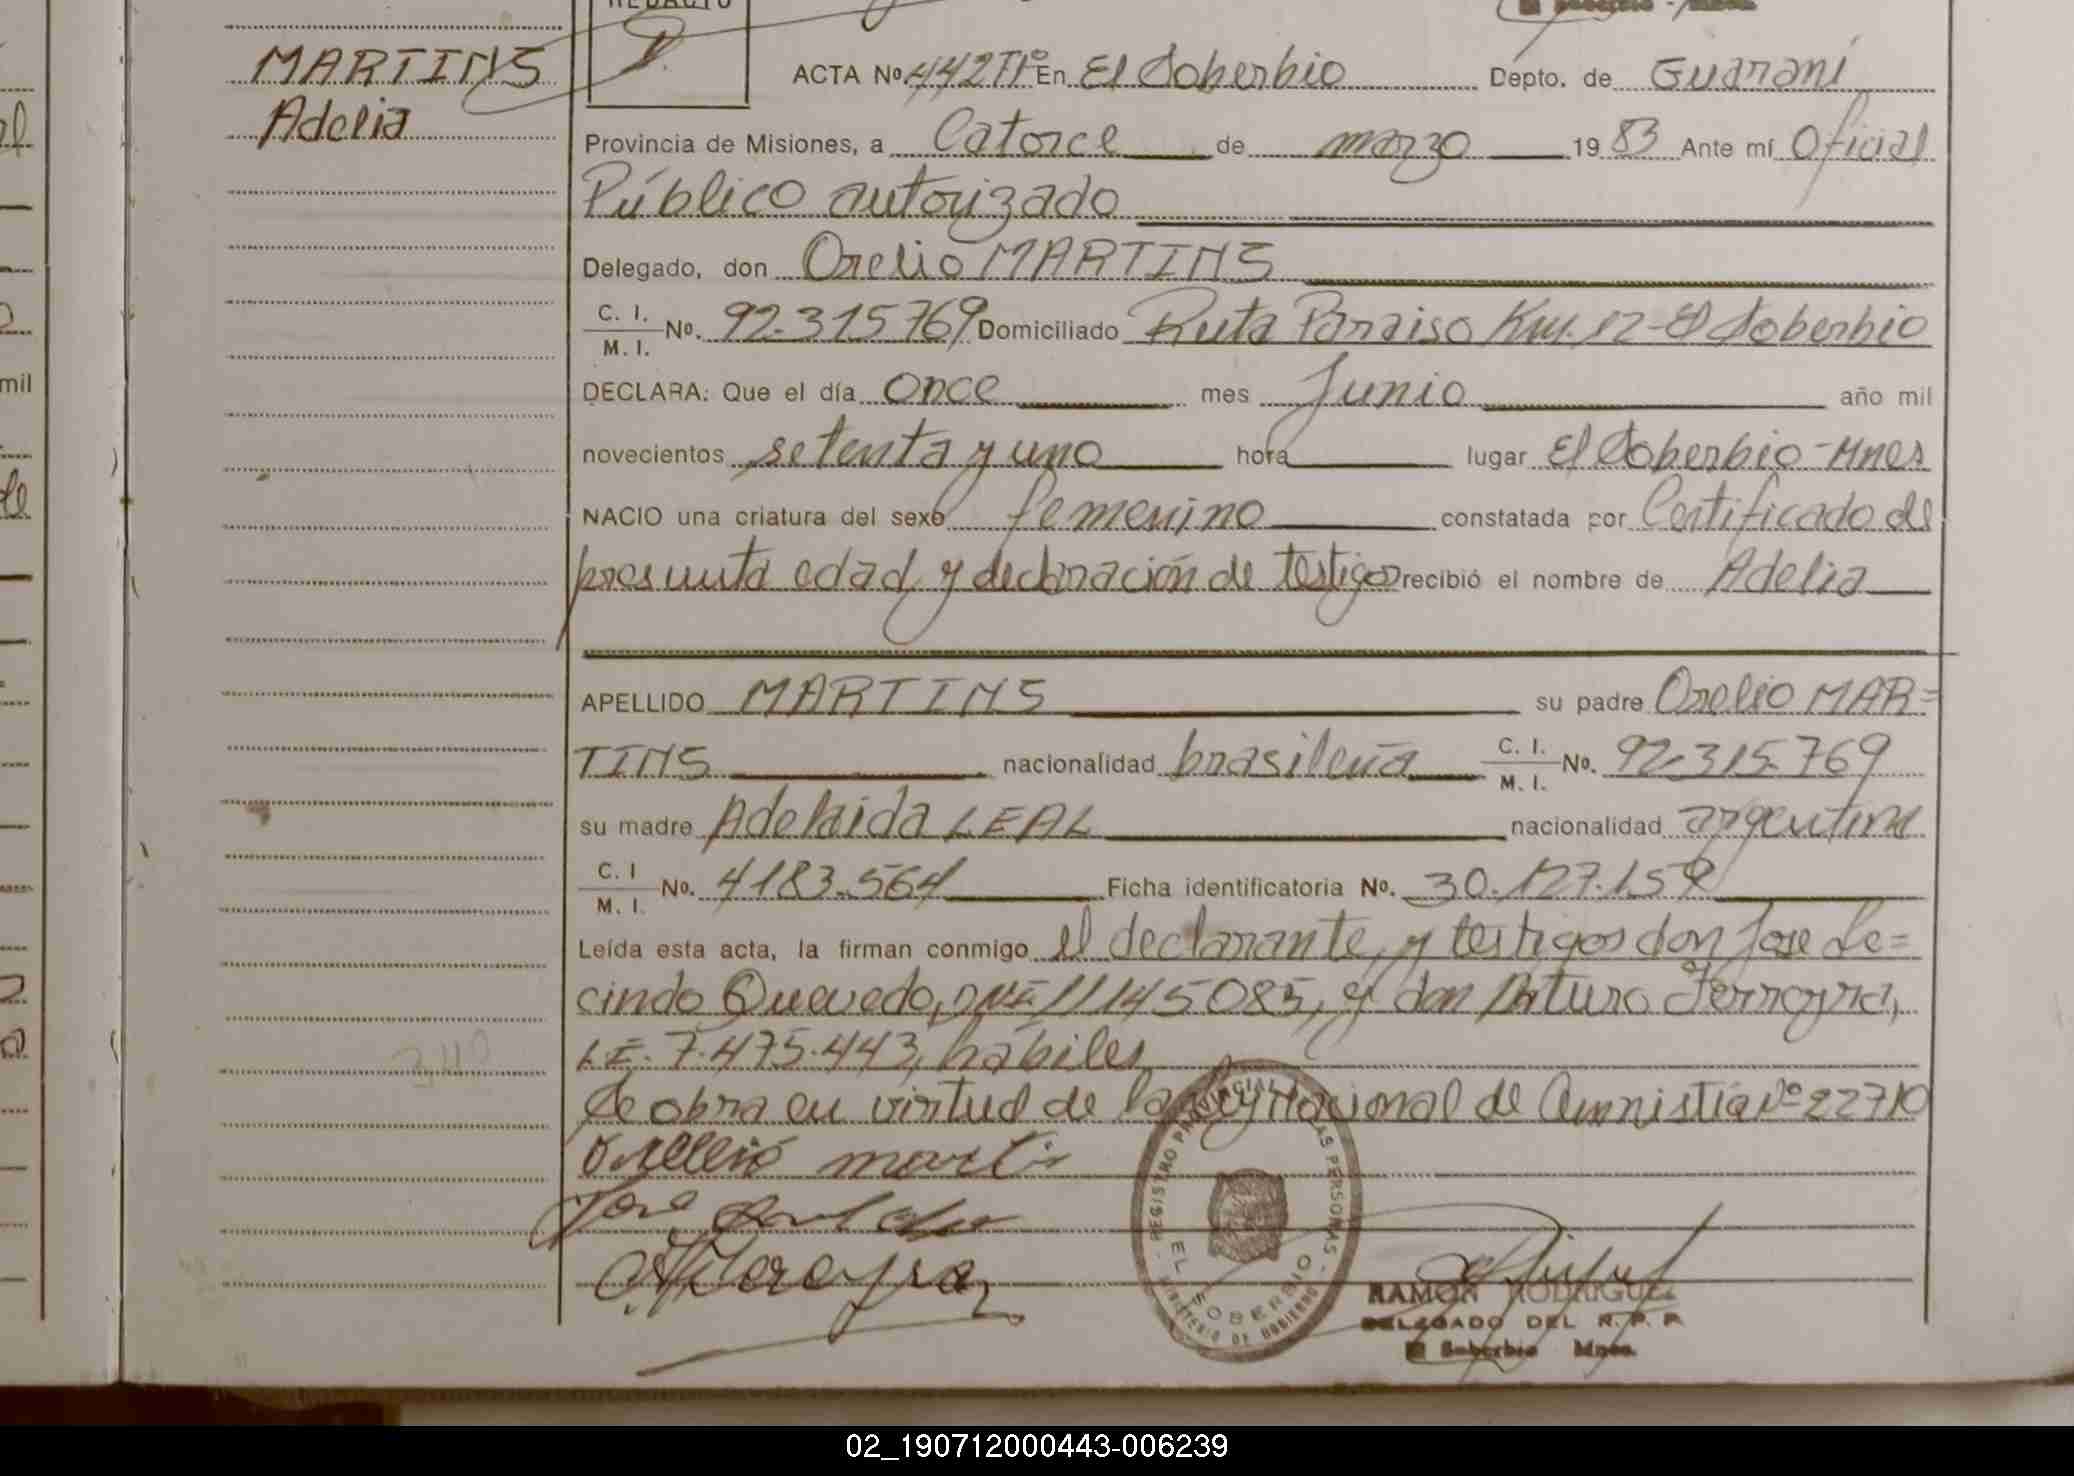 REDACTO
MARTINS
Adelia
ACTA Nº 442 Tº En El Soberbio Depto. de Guaraní
Provincia de Misiones, a Catorce de marzo 1983 Ante mí Oficial
Público autorizado
Delegado, don Orelio MARTINS
C. I. M. I. Nº. 92.315769 Domiciliado Ruta Paraiso Km. 12 - El Soberbio
DECLARA: Que el día once mes Junio año mil
novecientos setenta y uno hora lugar El Soberbio - Mnes
NACIO una criatura del sexo femenino constatada por Certificado de
presunta edad, y declaración de testigos recibió el nombre de Adelia
APELLIDO MARTINS su padre Orelio MAR=
TINS nacionalidad brasileña C. I. M. I. Nº. 92.315.769
su madre Adelaida LEAL nacionalidad argentina
C. I M. I. Nº. 4183.564 Ficha identificatoria Nº. 30.127.159
Leída esta acta, la firman conmigo el declarante, y testigos don Jose Le=
cindo Quevedo, DNI 11145085, y don Arturo Ferreyra,
LE. 7.475.443, hábiles
Se obra en virtud de la Ley Nacional de Amnistía Nº 22710
Orellio marti
REGISTRO PROVINCIAL DE LAS PERSONAS
EL SOBERBIO
MINISTERIO DE GOBIERNO
RAMON RODRIGUEZ
DELEGADO DEL R. P. P.
El Soberbio Mnes.
02_190712000443-006239